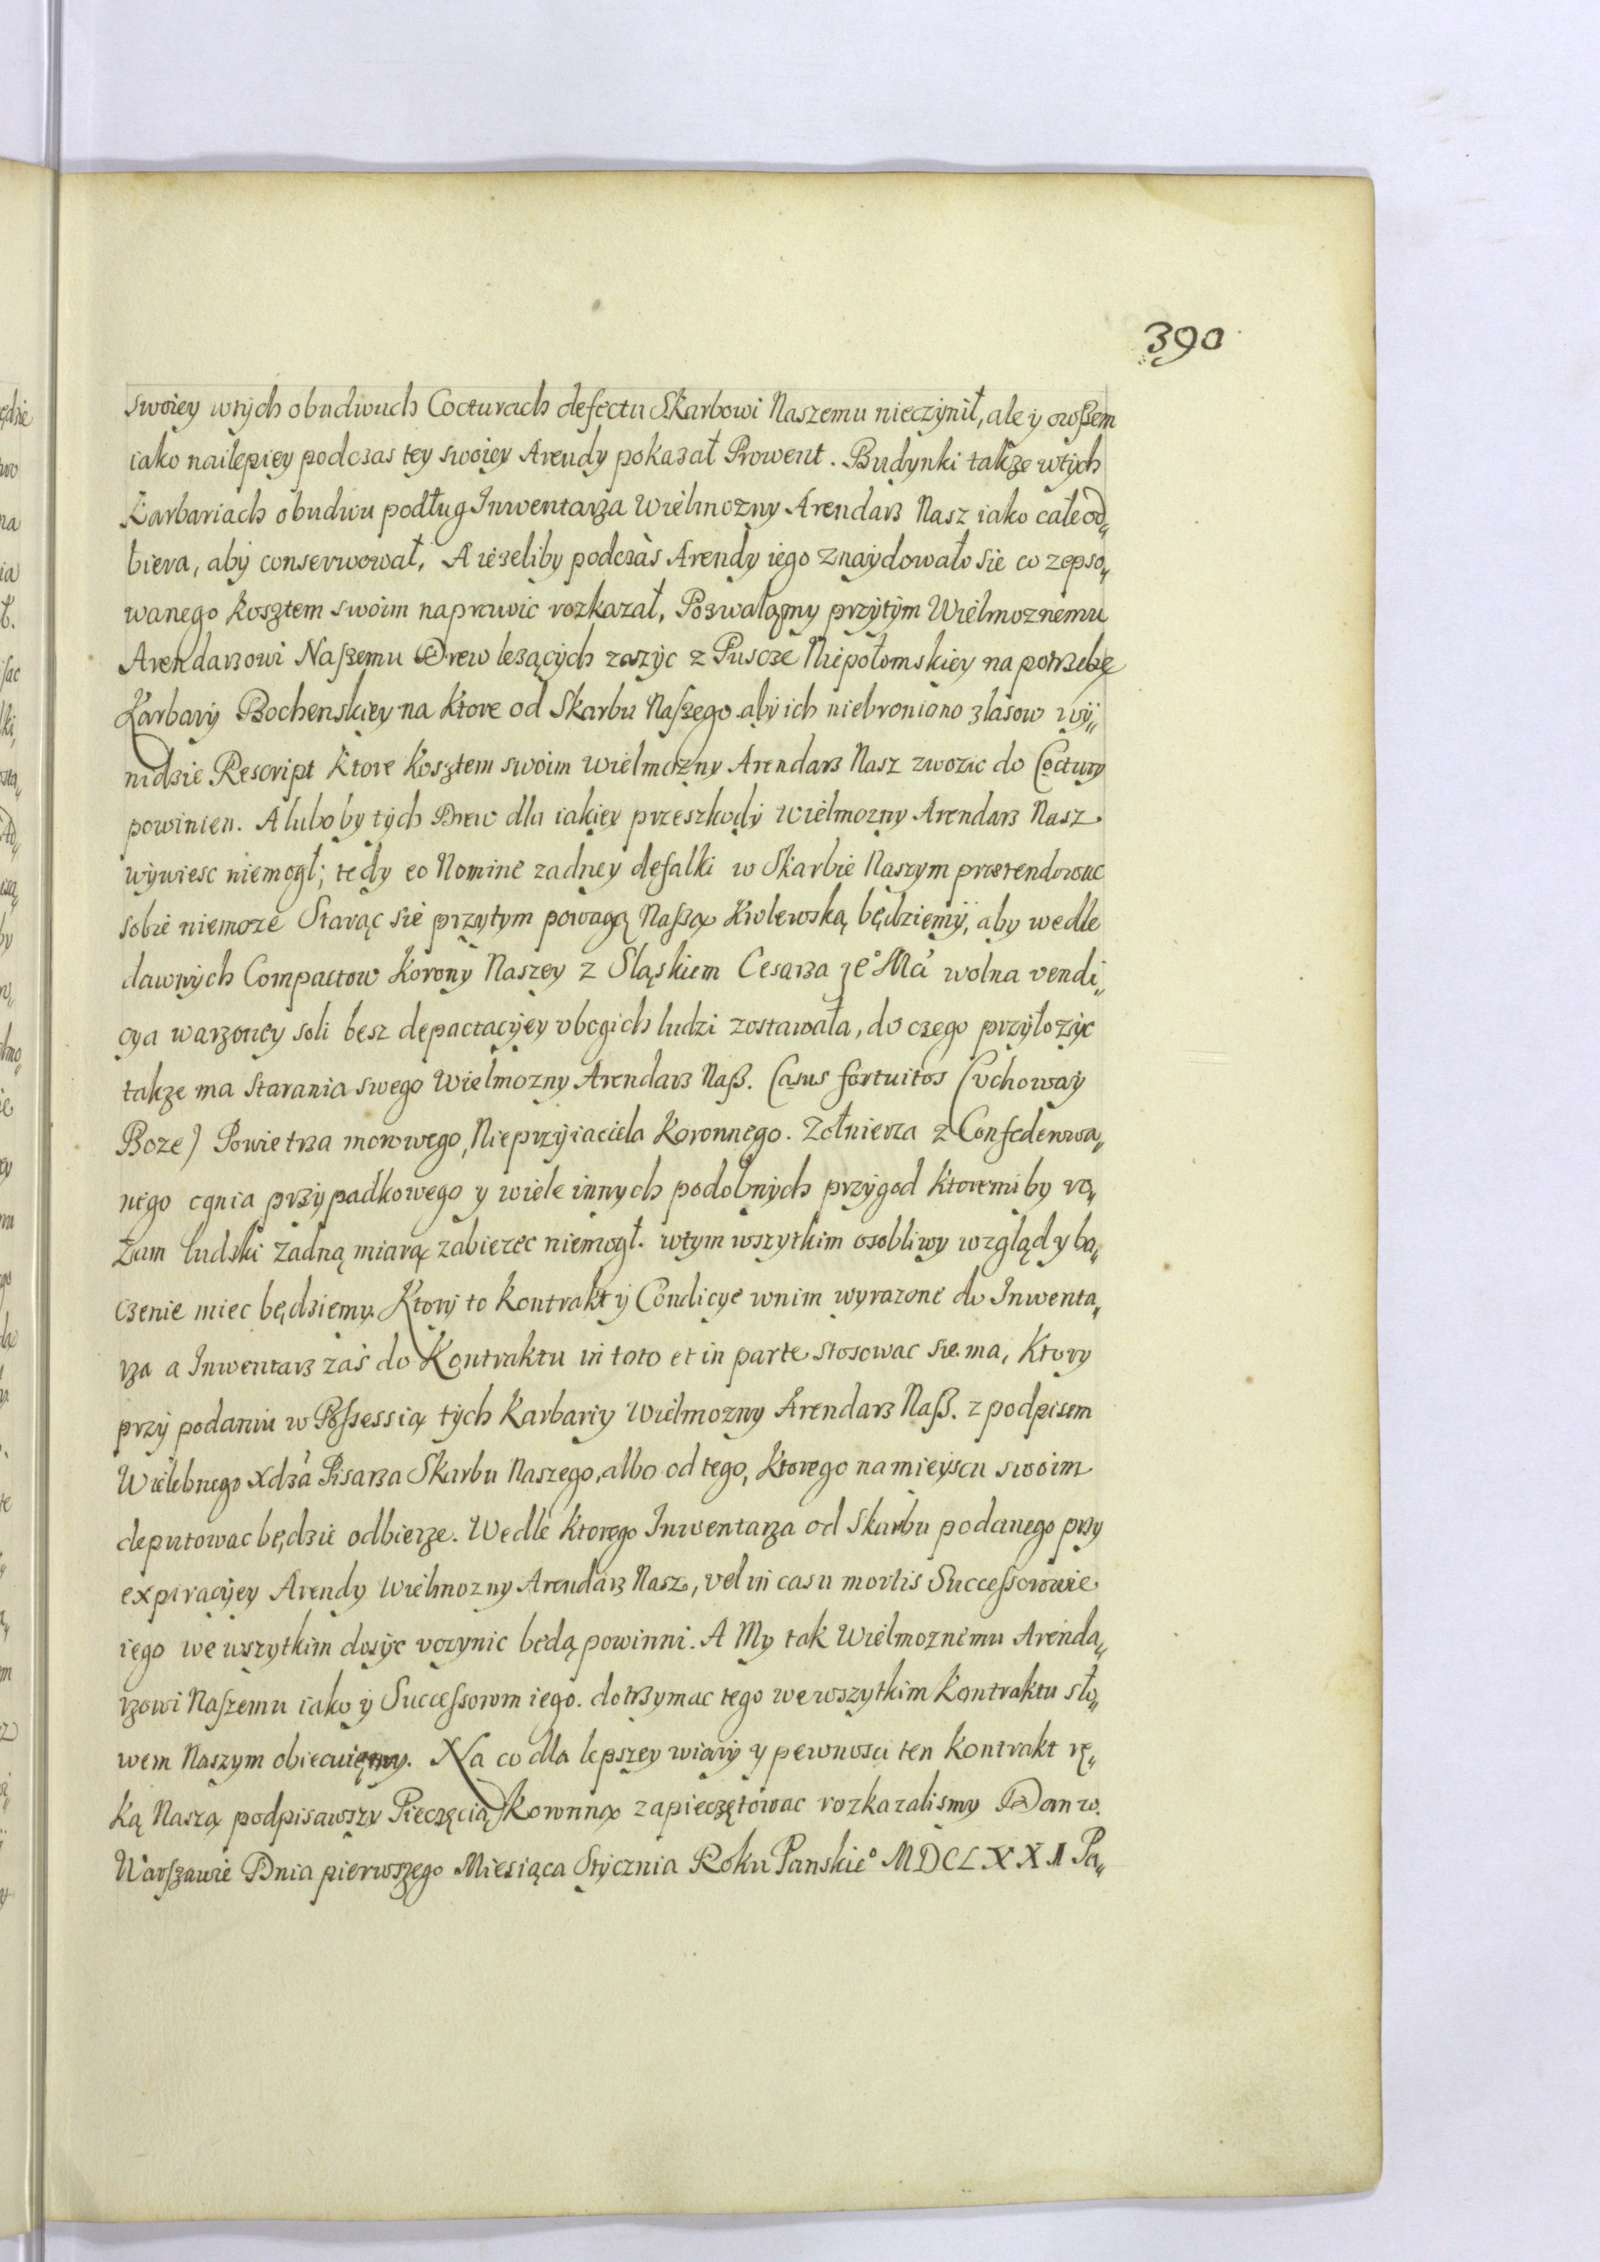 390
swoiey wtych obudwuch Cocturach defectu Skarbowi Naszemu nieczynił, ale y owszem
iako nailepiey podczas tey swoiey Arendy pokazał Prowent. Budynki także wtych
Karbariach obudwu podług Inwentarza Wielmozny Arendarz Nasz iako całe od„
biera, aby conserwował, A ieżeliby podczas Arendy iego znaydowało sie co zepso„
wanego kosztem swoim naprawic rozkazał, Pozwalamy przytym Wielmoznemu
Arendarzowi Naszemu Drew leżących zazyc z Puscze Niepołomskiey na potrzebę
Karbary Bochenskiey na ktore od Skarbu Naszego aby ich niebroniono zlasow wy„
nidzie Rescript ktore kosztem swoim Wielmozny Arendarz Nasz zwozic do Coctury
powinien. A luboby tych Drew dla iakiey przeszkody Wielmozny Arendarz Nasz
wywiesc niemogł; tedy eo Nomine zadney defalki w Skarbie Naszym prætendowac
sobie niemoze Starąc sie przytym powagą Naszą Krolewską będziemy, aby wedle
dawnych Compactow Korony Naszey z Sląskiem Cesarza Jeº Mci wolna vendi„
cya warzoney soli besz depactacyey vbogich ludzi zostawała, do czego przyłozyc
takze ma starania swego Wielmozny Arendarz Nasz. Casus fortuitos (vchoway
Boze) Powietrza morowego, Nieprzyiaciela Koronnego. Zołnierza z Confederowa„
nego ognia przypadkowego y wiele innych podobnych przygod ktoremiby ro„
zum ludzki żadną miarą zabiezec niemogł. wtym wszytkim osobliwy wzgląd y ba„
czenie miec będziemy. Ktory to Kontrakt y Condicye wnim wyrazone do Inwenta„
rza a Inwentarz zaś do Kontraktu in toto et in parte stosowac sie ma, Ktory
przy podaniu w Possessią tych Karbariy Wielmozny Arendarz Nasz. z podpisem
Wielebnego Xdza Pisarza Skarbu Naszego, albo od tego, ktorego na mieyscu swoim
deputowac będzie odbierze. Wedle ktorego Inwentarza od Skarbu podanego przy
expiracyey Arendy Wielmozny Arendarz Nasz, vel in casu mortis Successorowie
iego we wszytkim dosyc vczynic będą powinni. A My tak Wielmoznemu Arenda„
rzowi Naszemu iako y Successorom iego. dotrzymac tego wewszytkim Kontraktu sło„
wem Naszym obiecuięmy. Na co dla lepszey wiary y pewnosci ten Kontrakt rę„
ką Naszą podpisawszy Pieczęcią Koronną zapieczętowac rozkazalismy Dan w
Warszawie Dnia pierwszego Miesiąca Stycznia Roku Panskieº MDCLXXII Pa„